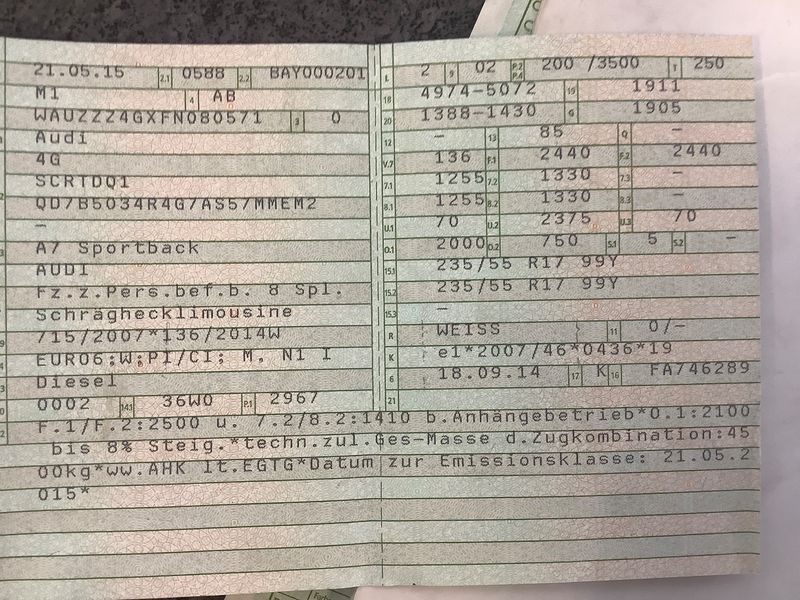 21.05.15 2.1 0588 2.2 BAY000201
M1 4 AB
WAUZZZ4GXFN080571 3 0
Audi
4G
SCRTDQ1
QD7B5034R4G7AS57MMEM2
—
A7 Sportback
AUDI
Fz.z.Pers.bef.b. 8 Spl.
Schräghecklimousine
/715/2007*136/2014W
EURO6;W;PI/CI; M, N1 I
Diesel
0002 14.1 36W0 P.1 2967
L 2 9 02 P.2 P.4 200 /3500 T 250
18 4974-5072 19 1911
20 1388-1430 G 1905
12 — 13 85 Q —
V.7 136 F.1 2440 F.2 2440
7.1 1255 7.2 1330 7.3 —
8.1 1255 8.2 1330 8.3 —
U.1 70 U.2 2375 U.3 70
O.1 2000 O.2 750 S.1 5 S.2 —
15.1 235/55 R17 99Y
15.2 235/55 R17 99Y
15.3 —
R WEISS 11 0/-
K e1*2007/46*0436*19
6 18.09.14 17 K 16 FA746289
21
F.1/F.2:2500 u. 7.2/8.2:1410 b.Anhängebetrieb*O.1:2100
bis 8% Steig.*techn.zul.Ges-Masse d.Zugkombination:45
00kg*ww.AHK lt.EGTG*Datum zur Emissionsklasse: 21.05.2
015*